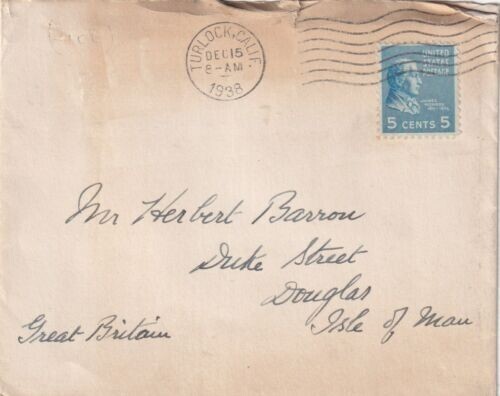 TURLOCK, CALIF.
DEC 15
8-AM
1938
UNITED
STATES
POSTAGE
JAMES
MONROE
5 CENTS 5
Mr Herbert Barron
Duke Street
Douglas
Isle of Man
Great Britain